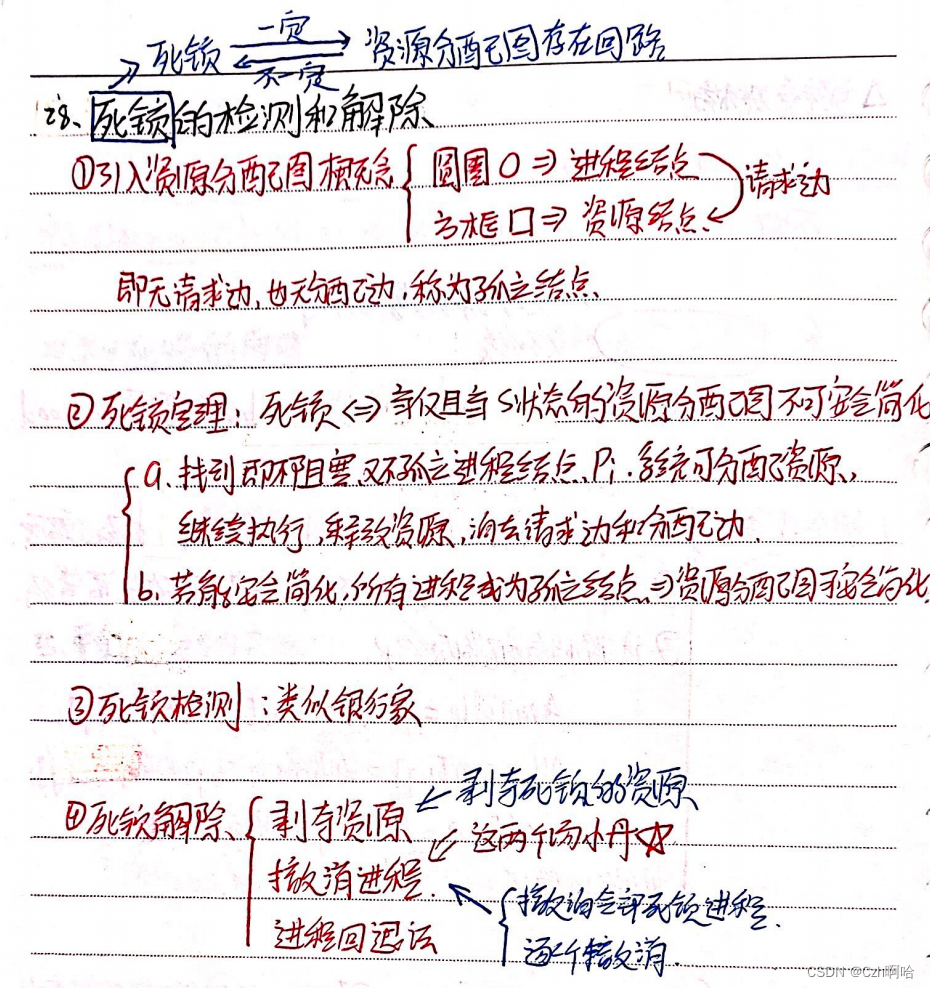 死锁 一定 资源分配图存在回路
不一定
28、死锁的检测和解除、
①引入资源分配图概念 圆圈 ○ ⇒ 进程结点 请求边
方框 口 ⇒ 资源结点、
即无请求边，也无分配边，称为孤立结点、
② 死锁定理：死锁 <=> 当仅且当 S状态的资源分配图不可安全简化
a、找到即不阻塞又不孤立进程结点、Pi．系统可分配资源，
继续执行，释放资源，消去请求边和分配边．
b、若能安全简化，所有进程成为孤立结点、⇒资源分配图可安全简化
③ 死锁检测：类似银行家
④死锁解除、 剥夺资源 ← 剥夺死锁的资源、
撤消进程． ← 这两个 ☆
进程回退法 撤消全部死锁进程．
逐个撤消．
CSDN @Czh啊哈